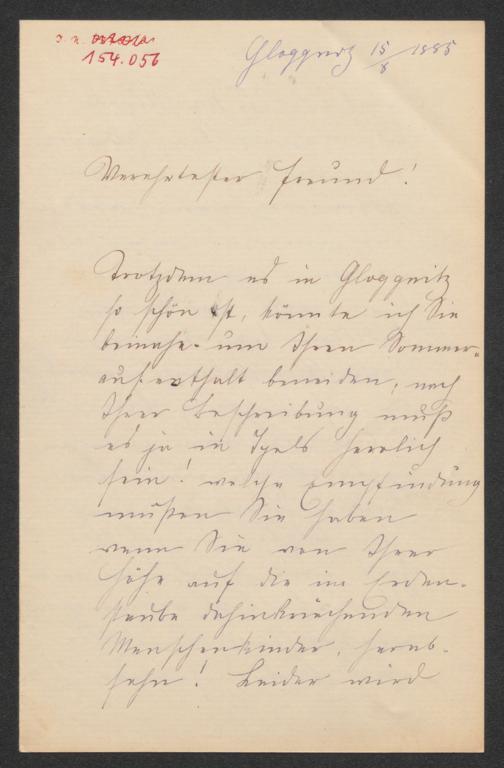 J. N.
154.056
Gloggnitz 15/8 1885
Verehrtester Freund!
Trotzdem es in Gloggnitz
so schön ist, könnte ich Sie
beinahe um Ihren Sommer-
aufenthalt beneiden, nach
Ihrer Beschreibung muß
es ja in Igels herrlich
sein! welche Empfindung
müßen Sie haben
wenn Sie von Ihrer
Höhe auf die im Erden-
staube dahinkriechenden
Menschenkinder, herab-
sehn! Leider wird